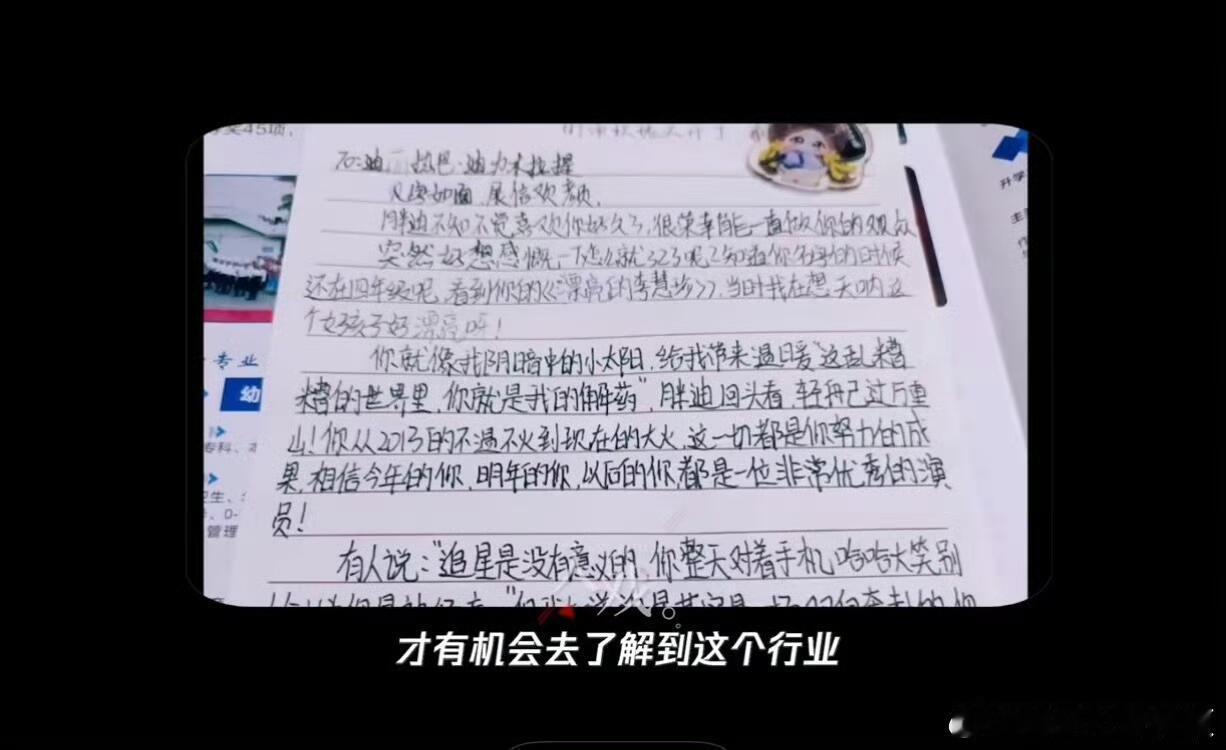 奖45项,
To:迪丽热巴·迪力木拉提
见字如面,展信欢颜,
胖迪不知不觉喜欢你好久了,很荣幸能一直做你的观众
突然好想感慨,一下怎么就323呢?知道你名字的时候
还在四年级呢,看到你的《漂亮的李慧珍》,当时我在想天呐这
个女孩子好漂亮呀!
你就像我阴暗中的小太阳,给我带来温暖"这乱糟
糟的世界里,你就是我的解药",胖迪回头看,轻舟已过万重
山!你从2013的不温不火到现在的大火,这一切都是你努力的成
果,相信今年的你,明年的你,以后的你,都是一位非常优秀的演
员!
有人说:"追星是没有意义的,你整天对着手机哈哈大笑别
专业
幼
专科、本
卫生、
、0-
管理
升学
主
才有机会去了解到这个行业